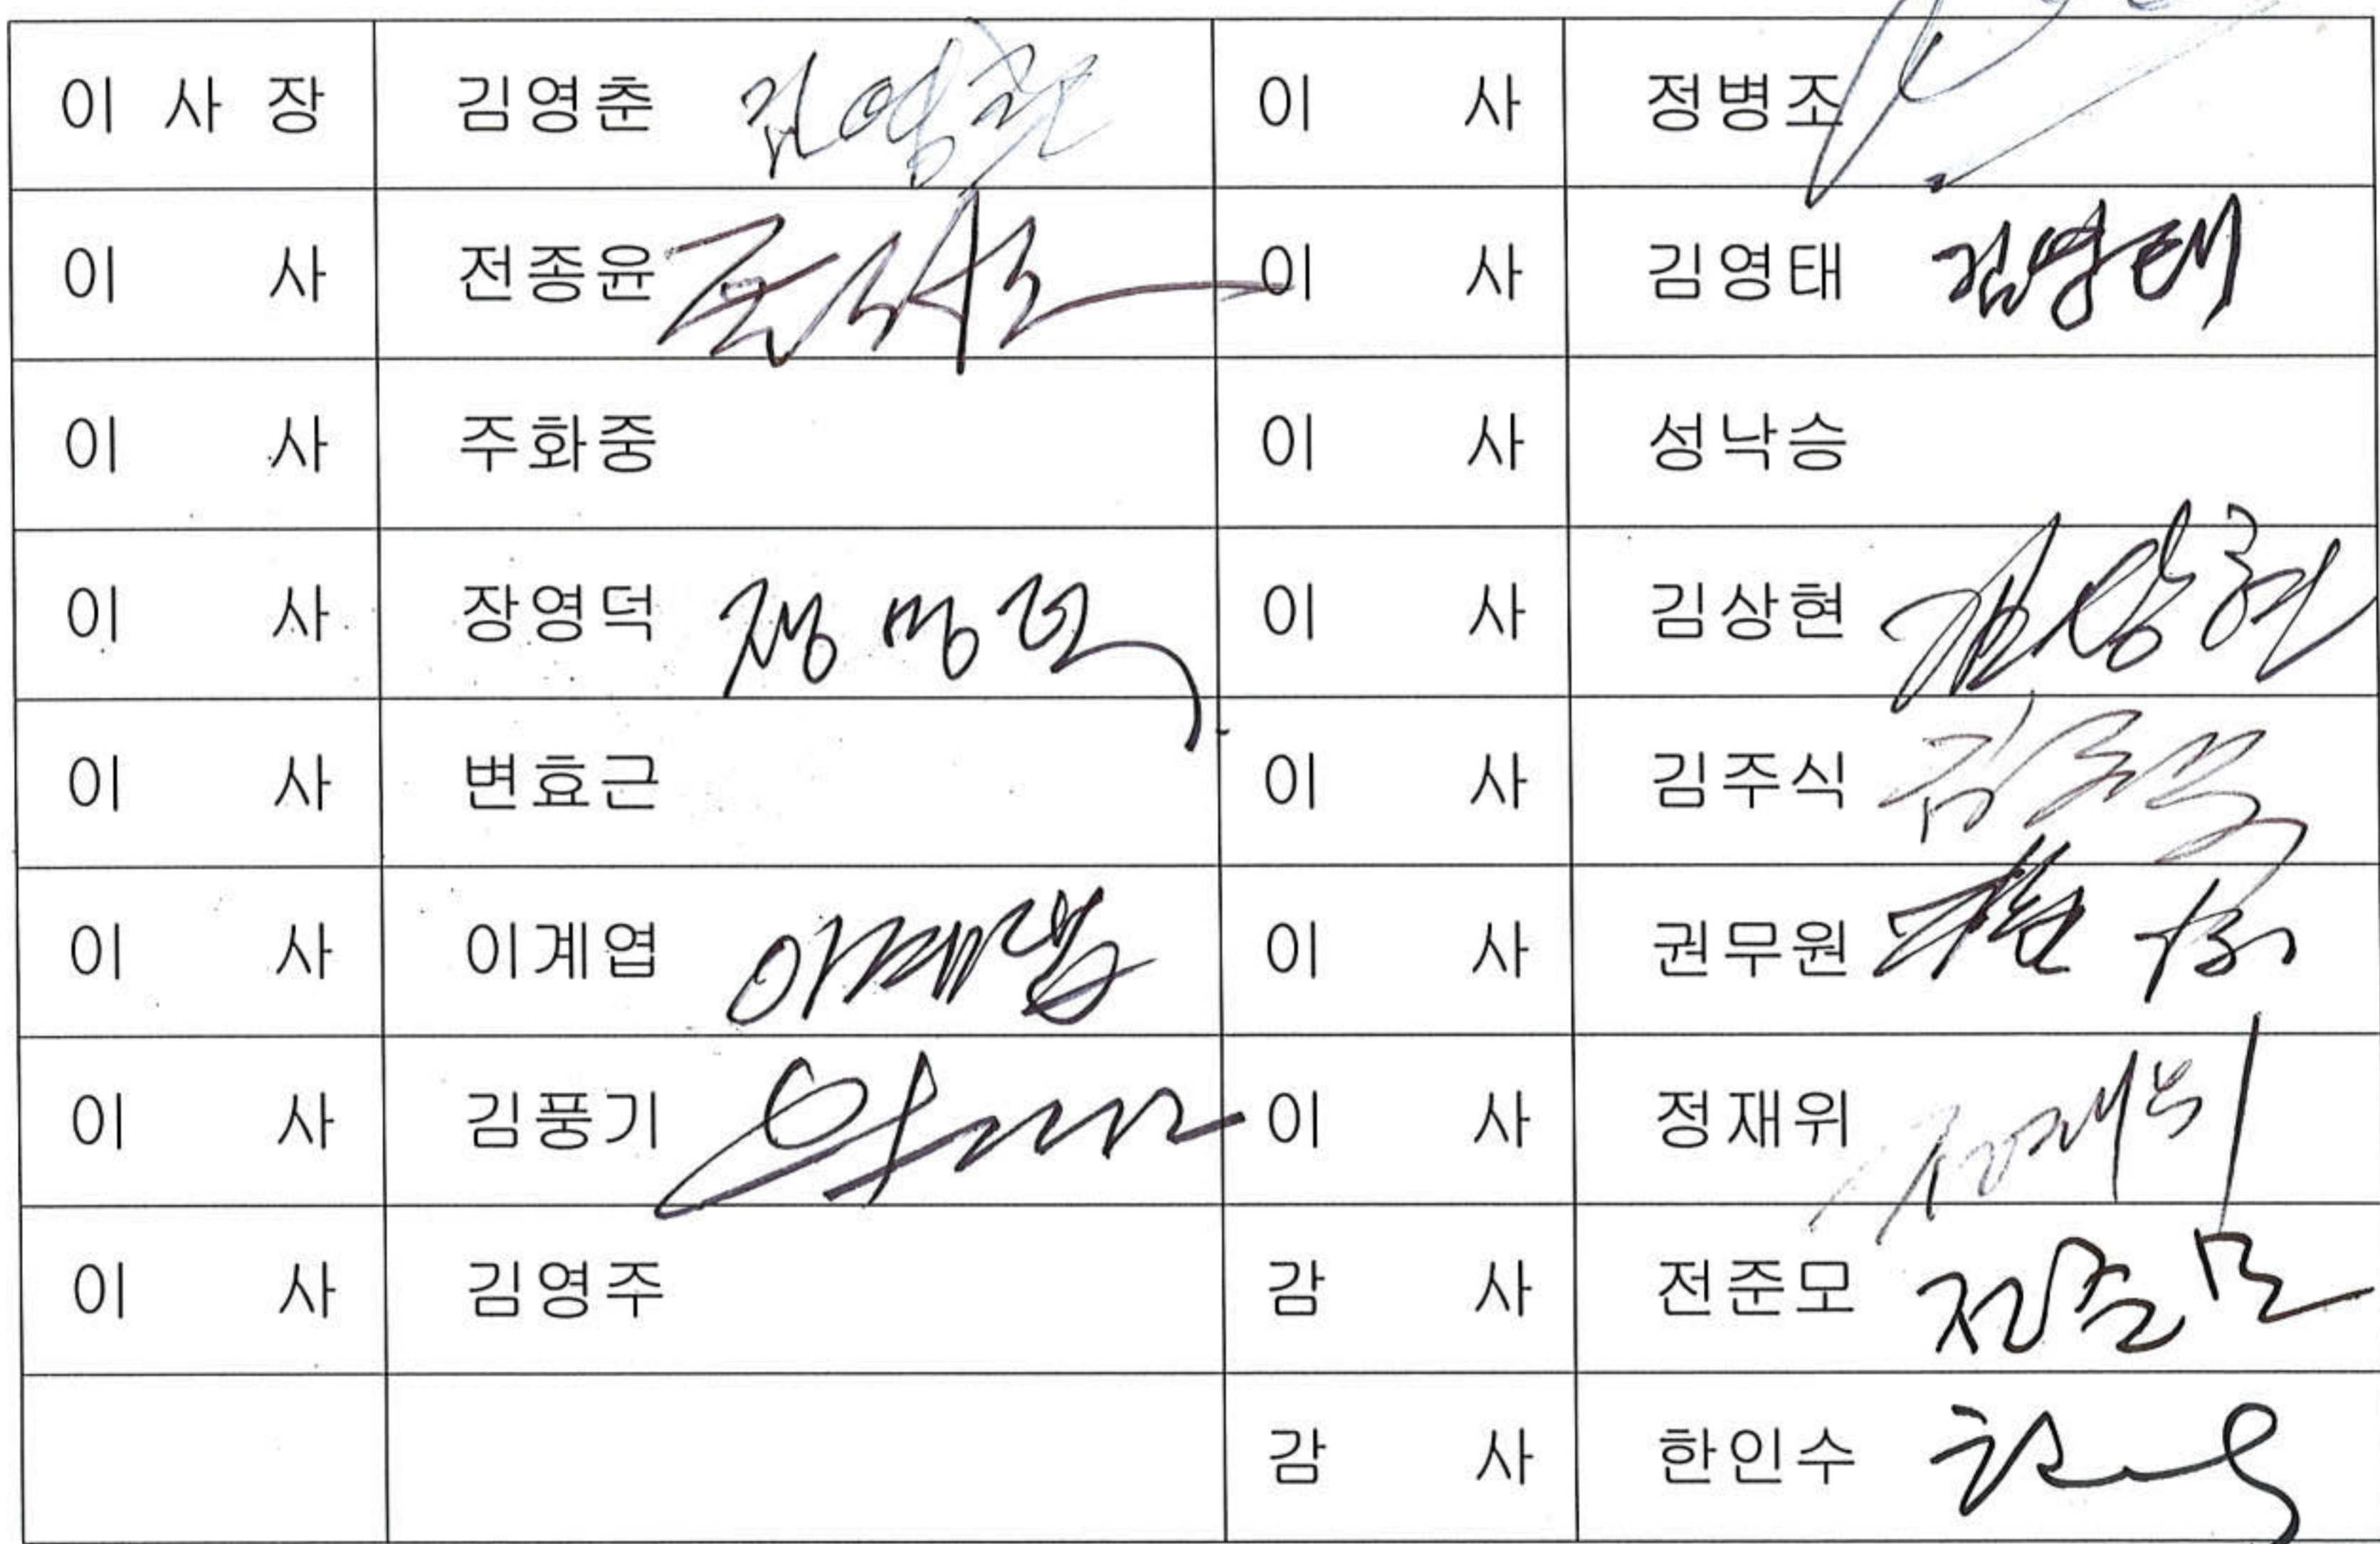 이 사 장 김영춘 김영춘 이 사 정병조
이 사 전종윤 이 사 김영태 김영태
이 사 주화중 이 사 성낙승
이 사 장영덕 장영덕 이 사 김상현 김상현
이 사 변효근 이 사 김주식 김주식
이 사 이계엽 이계엽 이 사 권무원
이 사 김풍기 이 사 정재위 정재위
이 사 김영주 감 사 전준모 전준모
감 사 한인수